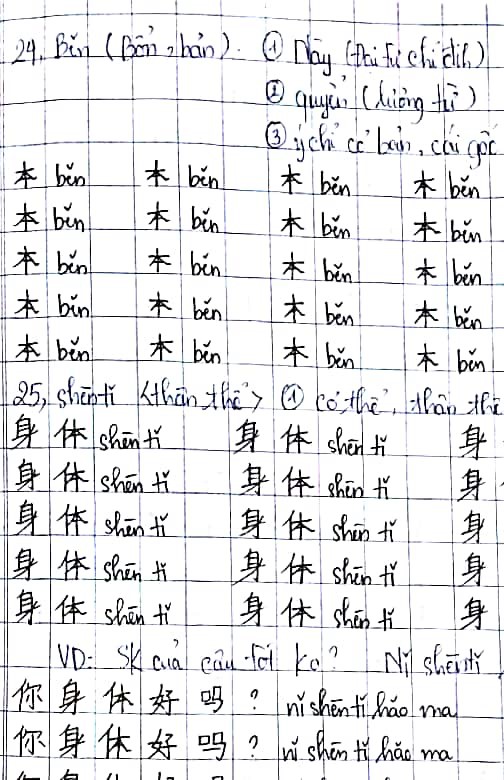 24, Běn (Bổn, bản). ① Này (Đại từ chỉ định)
② quyển (lượng từ)
③ ý chỉ cơ bản, cái gốc
本 běn 本 běn 本 běn 本 běn
本 běn 本 běn 本 běn 本 běn
本 běn 本 běn 本 běn 本 běn
本 běn 本 běn 本 běn 本 běn
本 běn 本 běn 本 běn 本 běn
25, shēntǐ <thân thể> ① cơ thể, thân thể
身体 shēn tǐ 身体 shēn tǐ 身
身体 shēn tǐ 身体 shēn tǐ 身
身体 shēn tǐ 身体 shēn tǐ 身
身体 shēn tǐ 身体 shēn tǐ 身
身体 shēn tǐ 身体 shēn tǐ 身
VD: SK của cậu tốt ko? Nǐ shēntǐ
你身体好吗? nǐ shēn tǐ hǎo ma
你身体好吗? nǐ shēn tǐ hǎo ma